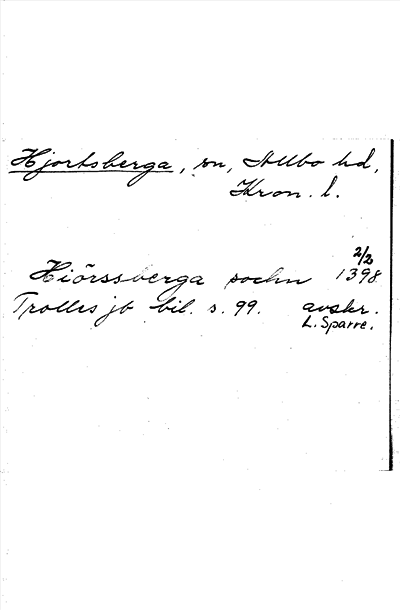 Hjortsberga, sn, Allbo hd,
Kron. l.
2/2
Hiörssberga sochn 1398
Trolles jb bil. s. 99. avskr.
L. Sparre.